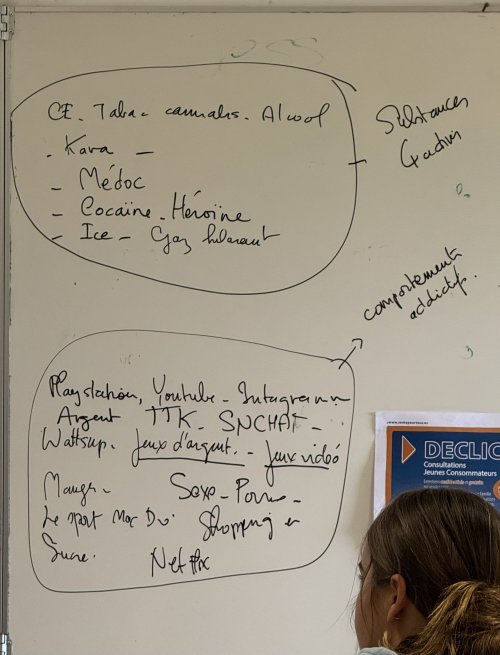 CE. Tabac cannabis. Alcool
- Kava -
- Médoc
- Cocaïne - Héroïne
- Ice - Gaz hilarant
Substances
comportements
addictifs.
Playstation, Youtube - Intagramm
Argent TTK - SNCHAT -
Wattsup. Jeux d'argent. - Jeux vidéo
Manger - Sexe - Porno -
Le sport Mac Do. Shopping
Sucre.
Netflix
DECLIC
Consultations
Jeunes Consommateurs